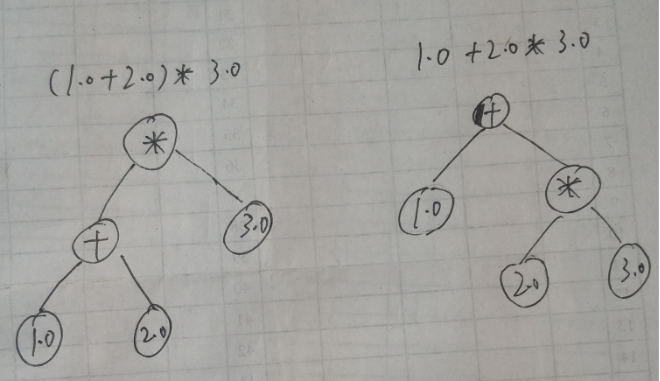 (1.0+2.0)* 3.0
*
+
3.0
1.0
2.0
1.0 +2.0* 3.0
+
1.0
*
2.0
3.0